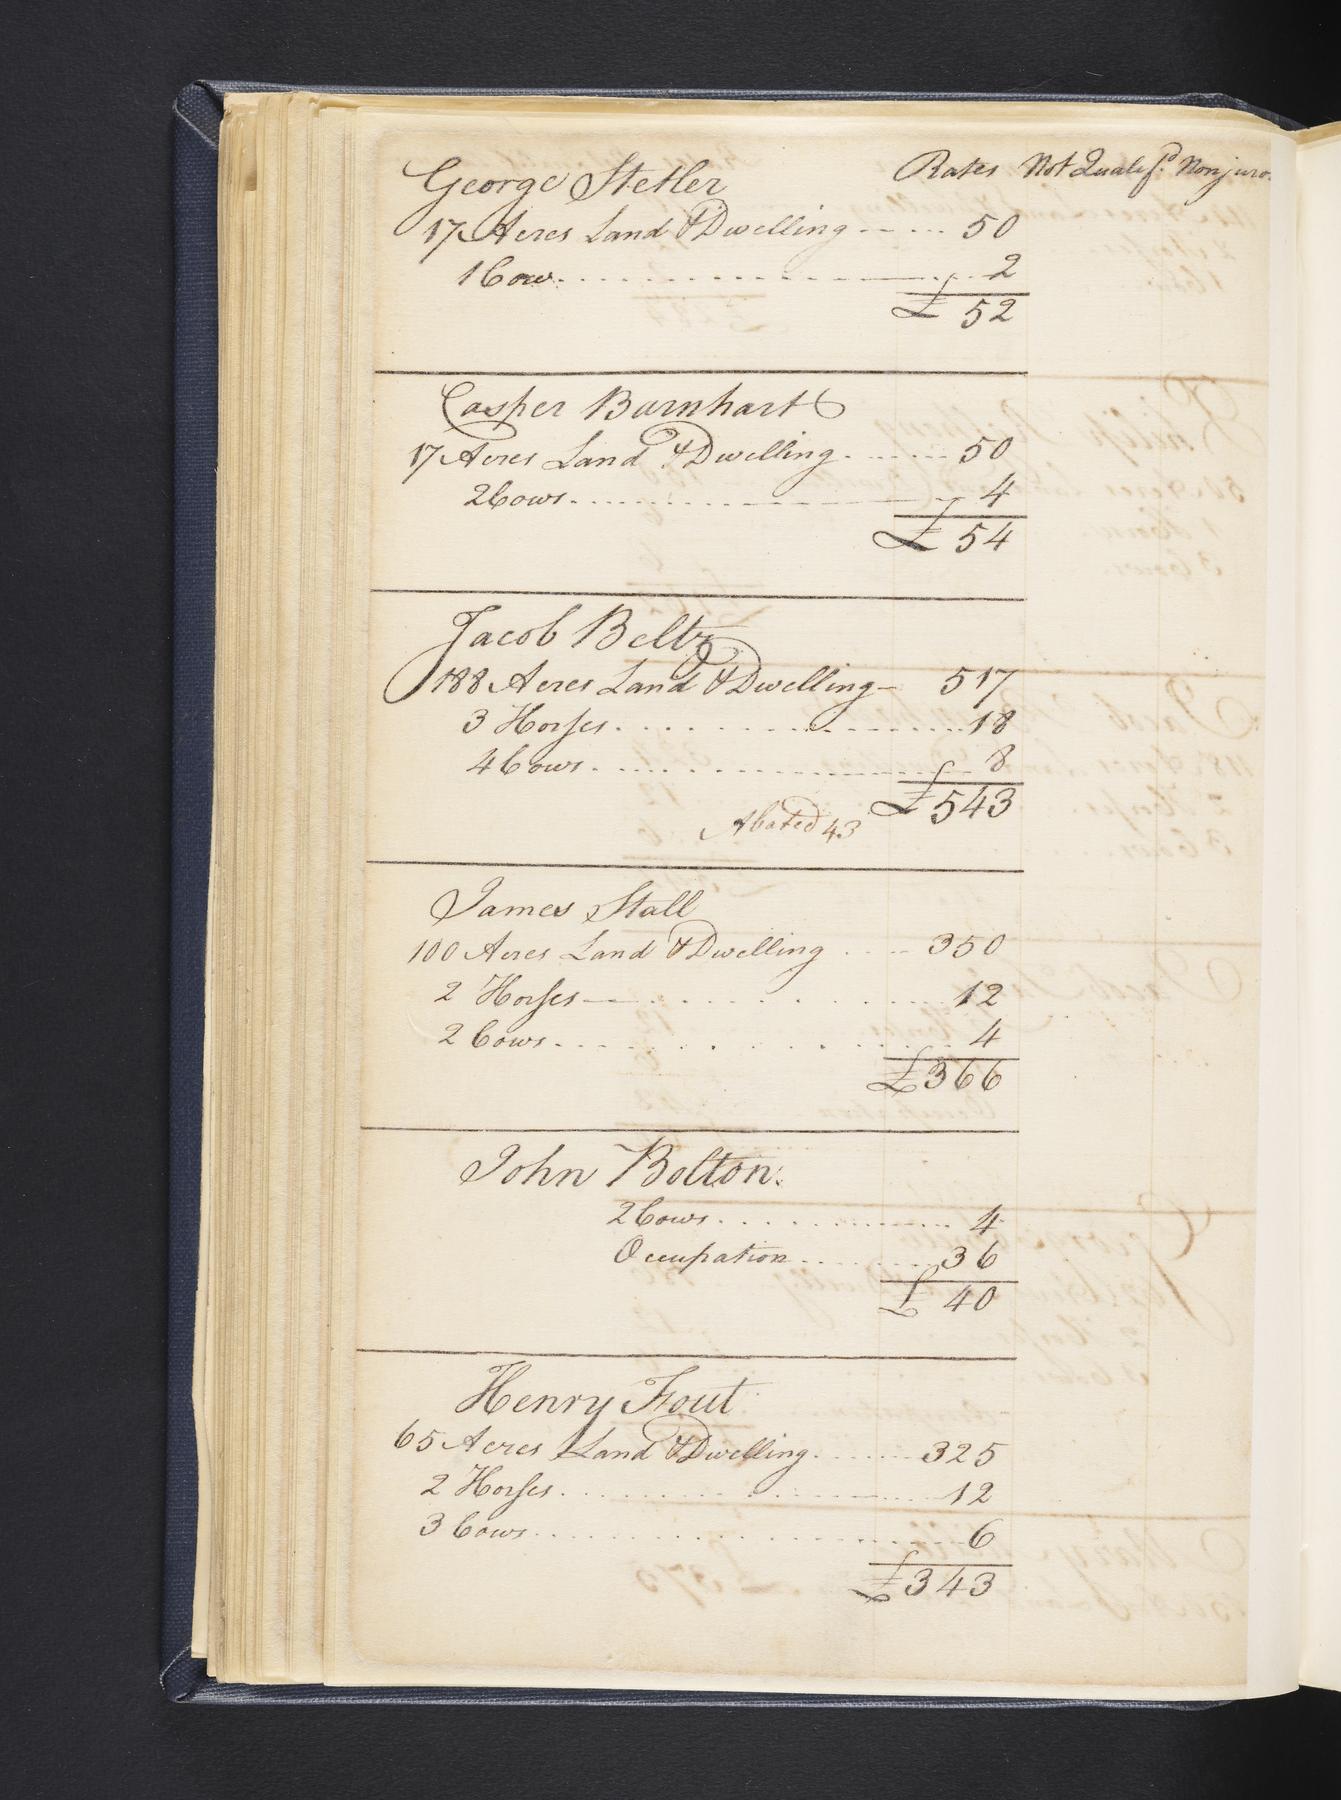 Rates Not Qualifd. Nonjuro
George Stetler
17 Acres Land & Dwelling 50
1 Cow 2
£ 52
Casper Barnhart
17 Acres Land & Dwelling 50
2 Cows 4
£ 54
Jacob Beltz
188 Acres Land & Dwelling 517
3 Horses 18
4 Cows 8
£ 543
Abated 43
James Stall
100 Acres Land & Dwelling 350
2 Horses 12
2 Cows 4
£ 366
John Bolton
2 Cows 4
Occupation 36
£ 40
Henry Fout
65 Acres Land & Dwelling 325
2 Horses 12
3 Cows 6
£ 343